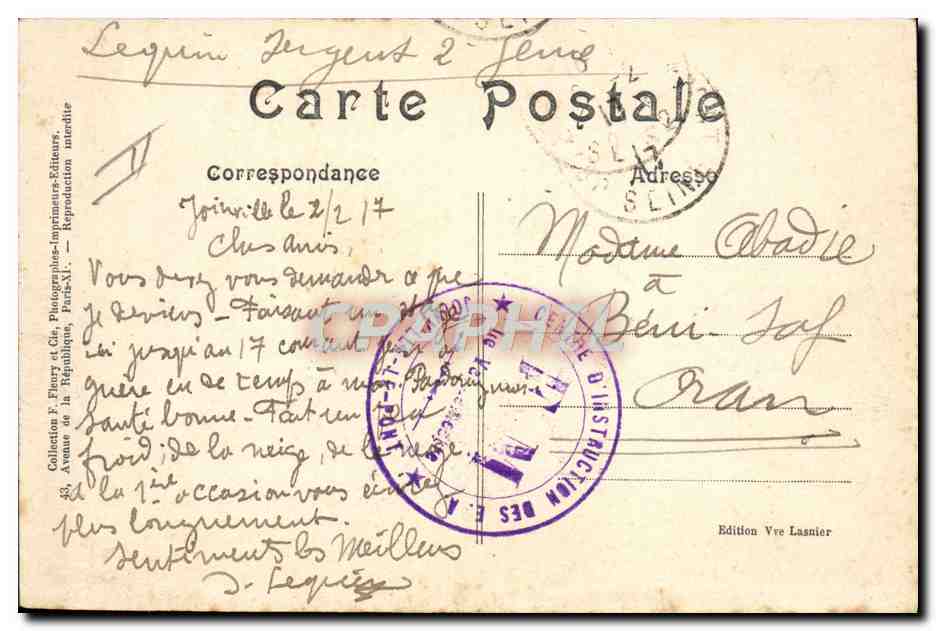 Lequin Sergent 2e
Carte Postale
Correspondance
Adresse
Joinville le 2/2 17
Chers amis,
Vous devez vous demander ce que
je deviens - Faisant un stage
ici jusqu'au 17 courant je n'ai
guère eu de temps à moi. Pardonnez moi
Santé bonne - Fait un peu
froid; de la neige, de la neige
A la 1ère occasion vous écrirez
plus longuement.
Sentiments les Meilleurs
J. Lequin
Madame Abadie
à
Béni-Saf
Oran
Edition Vve Lasnier
Collection F. Fleury et Cie, Photographes-Imprimeurs-Editeurs.
43, Avenue de la République, Paris-XI. — Reproduction interdite
CENTRE D'INSTRUCTION DES E. A
JOINVILLE-LE-PONT
SEINE
CPAPHIL